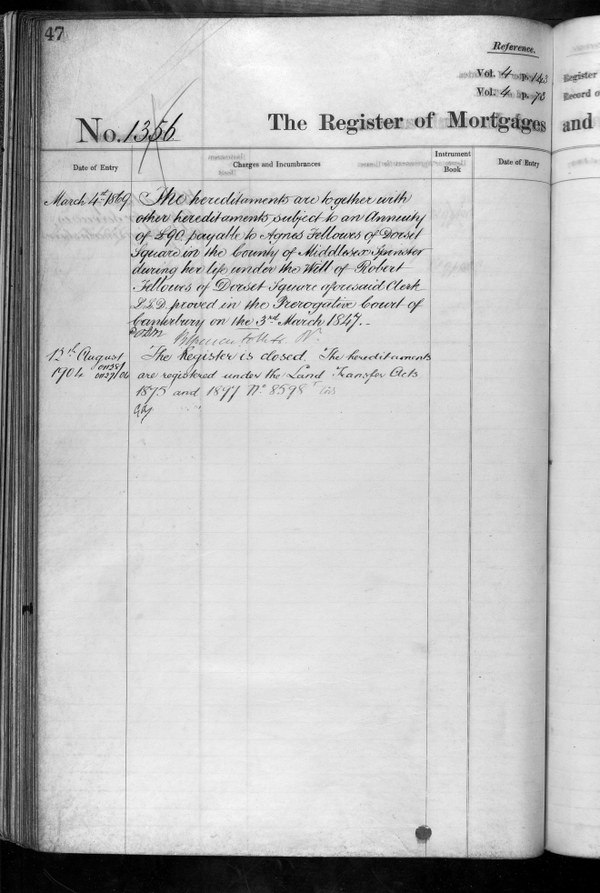 47
Reference.
Vol. 4 p. 143
Vol. 4 p. 78
No. 1356
The Register of Mortgages
and
Register
Record o
Date of Entry
Charges and Incumbrances
Instrument
Book
Date of Entry
March 4th 1869
The hereditaments are together with
other hereditaments subject to an Annuity
of £90 payable to Agnes Fellowes of Dorset
Square in the County of Middlesex Spinster
during her life under the Will of Robert
Fellowes of Dorset Square aforesaid Clerk
L.L.D. proved in the Prerogative Court of
Canterbury on the 3rd March 1847.
Follett R.
13th August
1904
The Register is closed. The hereditaments
are registered under the Land Transfer Acts
1875 and 1897 No. 8598